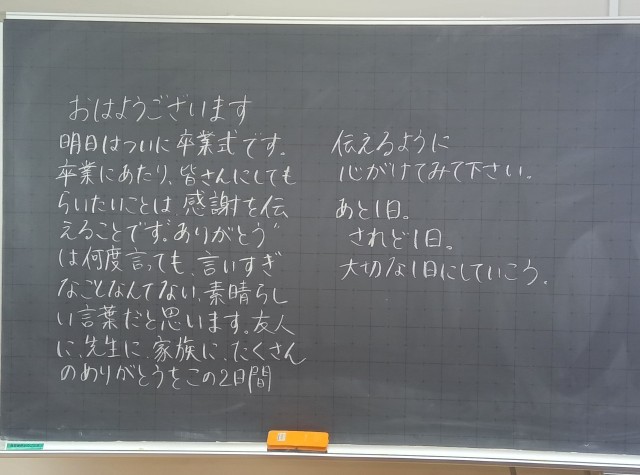 おはようございます
明日はついに卒業式です。
卒業にあたり、皆さんにしても
らいたいことは、感謝を伝
えることです。"ありがとう"
は何度言っても、言いすぎ
なことなんてない、素晴らし
い言葉だと思います。友人
に、先生に、家族に、たくさん
のありがとうをこの2日間
伝えるように
心がけてみて下さい。
あと1日。
されど1日。
大切な1日にしていこう。